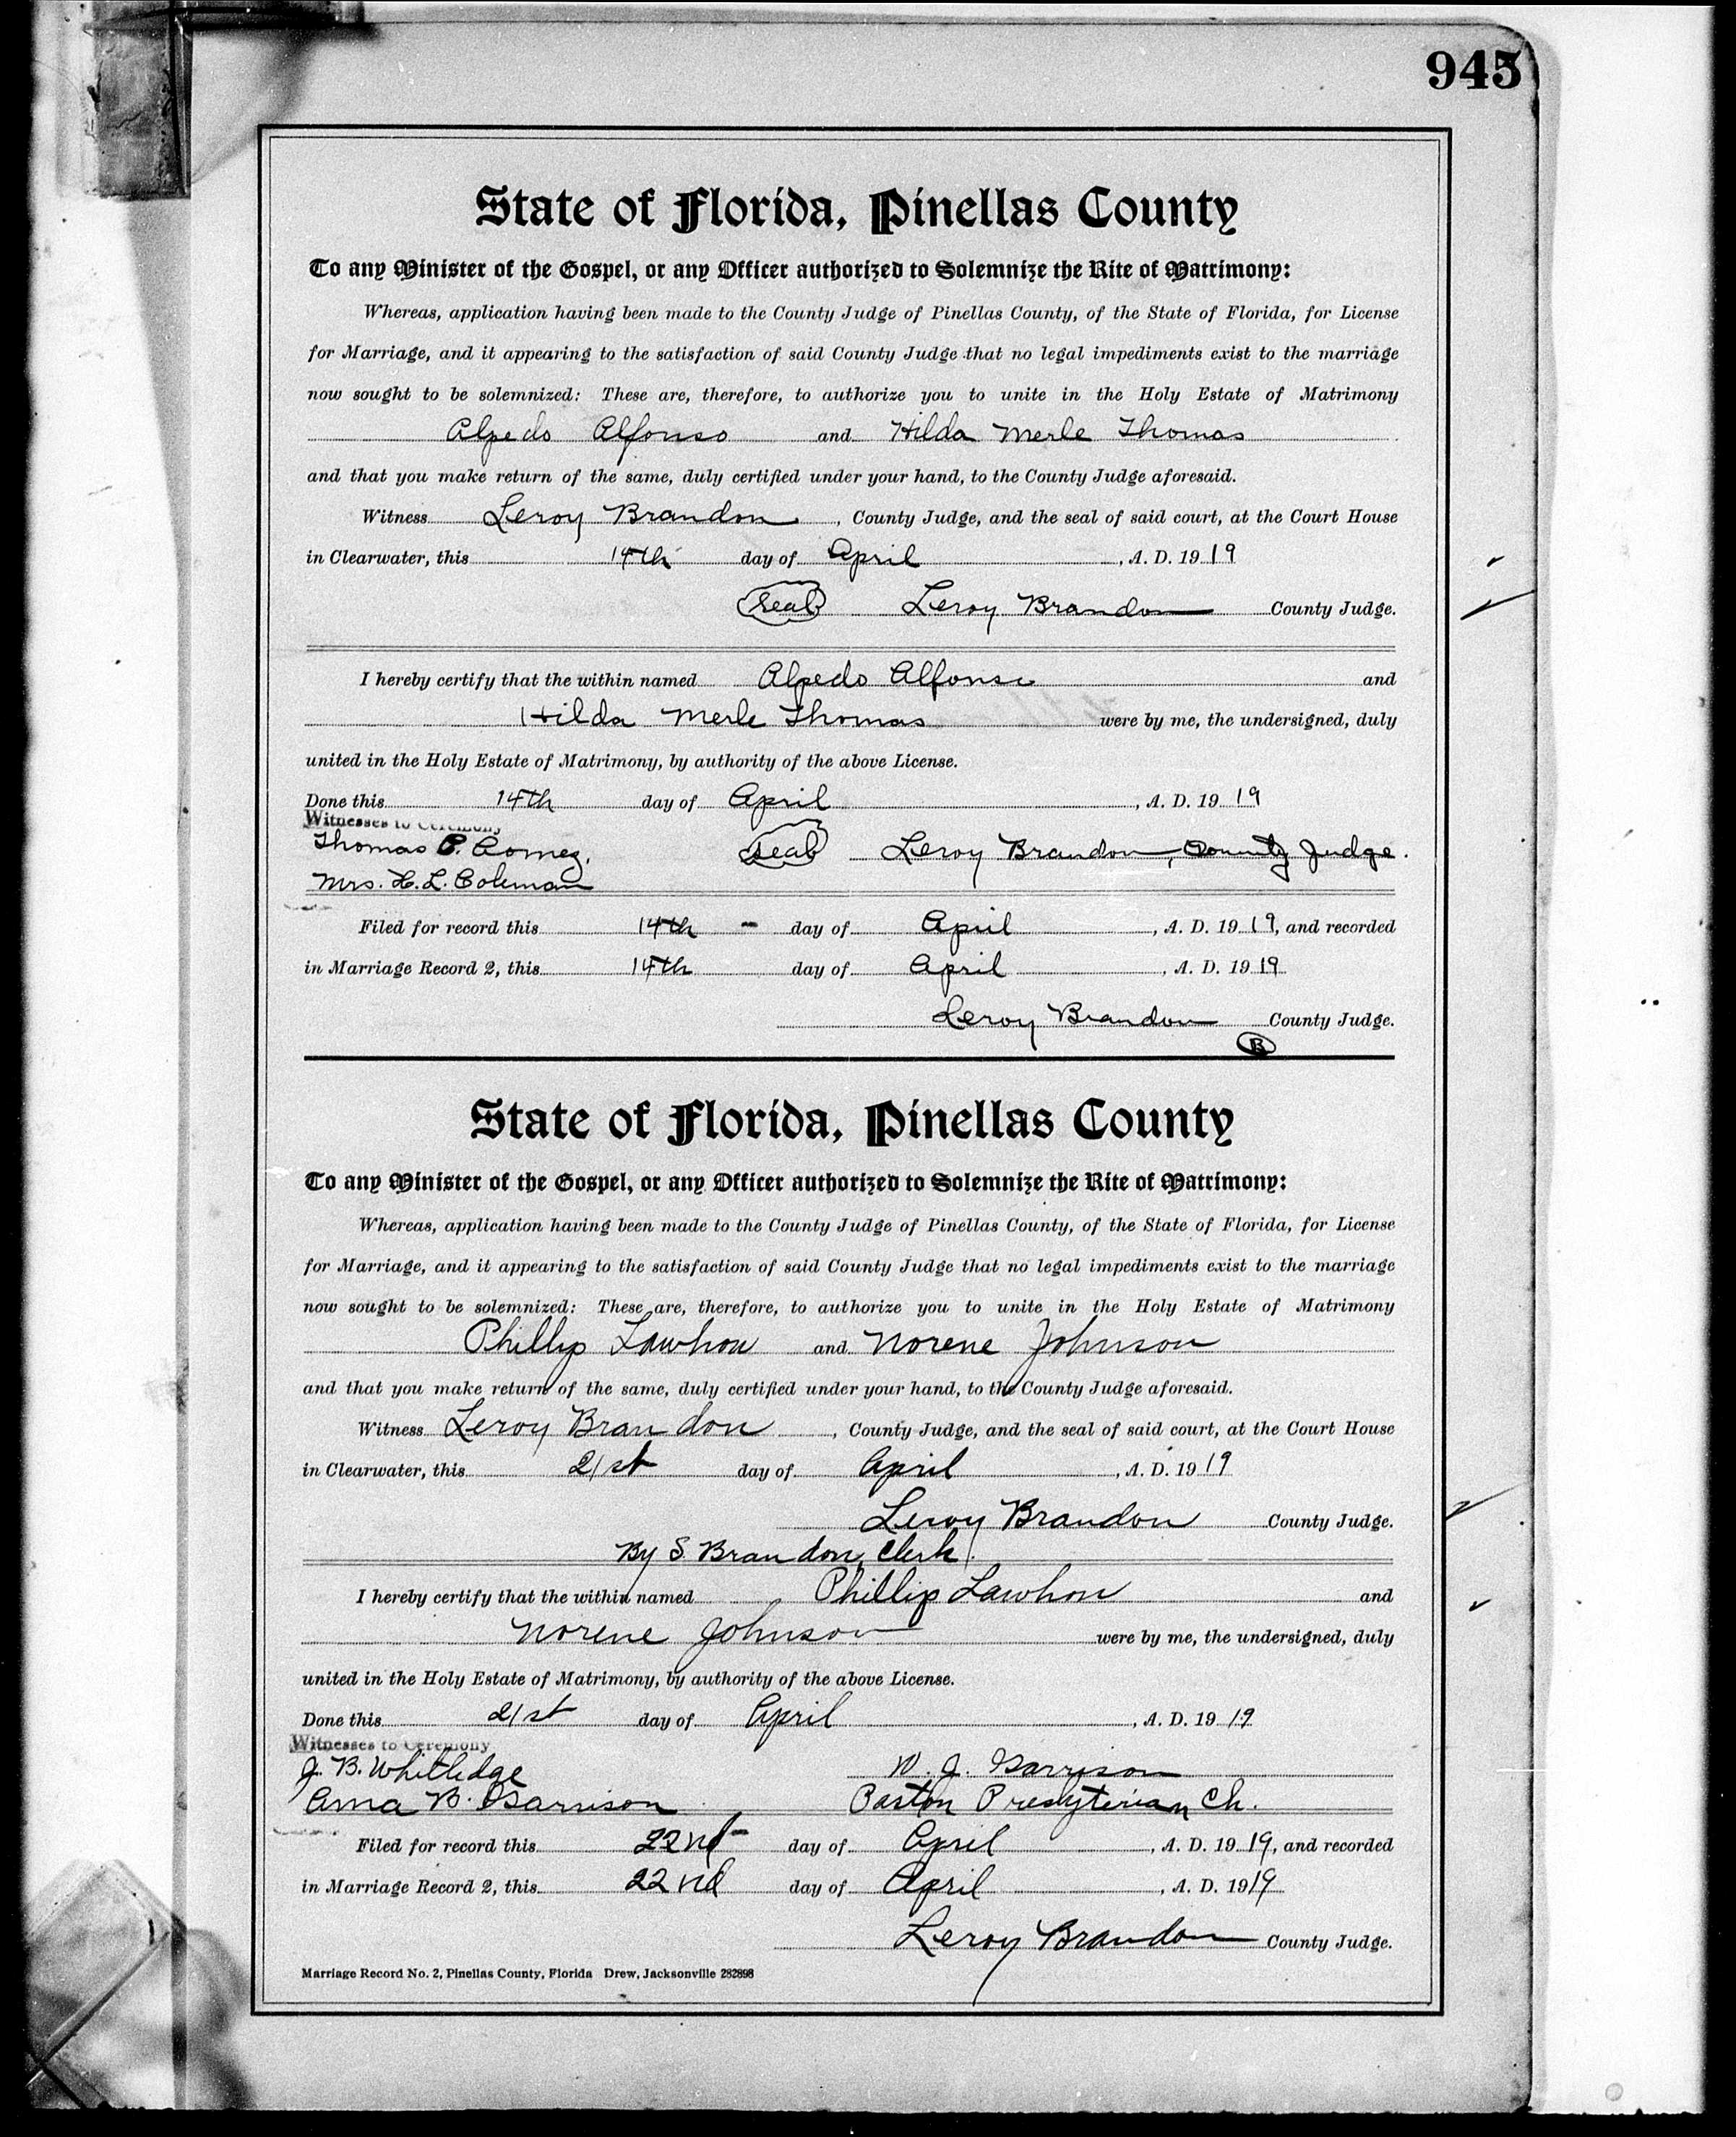 945
State of Florida, Pinellas County
To any Minister of the Gospel, or any Officer authorized to Solemnize the Rite of Matrimony:
Whereas, application having been made to the County Judge of Pinellas County, of the State of Florida, for License
for Marriage, and it appearing to the satisfaction of said County Judge that no legal impediments exist to the marriage
now sought to be solemnized: These are, therefore, to authorize you to unite in the Holy Estate of Matrimony
Alpedo Alfonso and Hilda Merle Thomas
and that you make return of the same, duly certified under your hand, to the County Judge aforesaid.
Witness Leroy Brandon, County Judge, and the seal of said court, at the Court House
in Clearwater, this 14th day of April, A. D. 1919
Seal Leroy Brandon County Judge.
I hereby certify that the within named Alpedo Alfonso and
Hilda Merle Thomas were by me, the undersigned, duly
united in the Holy Estate of Matrimony, by authority of the above License.
Done this 14th day of April, A. D. 1919
Witnesses to Ceremony
Thomas P. Gomez. Seal Leroy Brandon, County Judge.
Mrs. H. L. Coleman
Filed for record this 14th - day of April, A. D. 1919, and recorded
in Marriage Record 2, this 14th day of April, A. D. 1919
Leroy Brandon County Judge.
B
State of Florida, Pinellas County
To any Minister of the Gospel, or any Officer authorized to Solemnize the Rite of Matrimony:
Whereas, application having been made to the County Judge of Pinellas County, of the State of Florida, for License
for Marriage, and it appearing to the satisfaction of said County Judge that no legal impediments exist to the marriage
now sought to be solemnized: These are, therefore, to authorize you to unite in the Holy Estate of Matrimony
Phillip Lawhon and Norene Johnson
and that you make return of the same, duly certified under your hand, to the County Judge aforesaid.
Witness Leroy Brandon, County Judge, and the seal of said court, at the Court House
in Clearwater, this 21st day of April, A. D. 1919
Leroy Brandon County Judge.
By S. Brandon, Clerk.
I hereby certify that the within named Phillip Lawhon and
Norene Johnson were by me, the undersigned, duly
united in the Holy Estate of Matrimony, by authority of the above License.
Done this 21st day of April, A. D. 1919
Witnesses to Ceremony
J. B. Whitledge W. J. Garrison
Anna B. Garrison Pastor Presbyterian Ch.
Filed for record this 22nd - day of April, A. D. 1919, and recorded
in Marriage Record 2, this 22nd day of April, A. D. 1919
Leroy Brandon County Judge.
Marriage Record No. 2, Pinellas County, Florida Drew, Jacksonville 282898